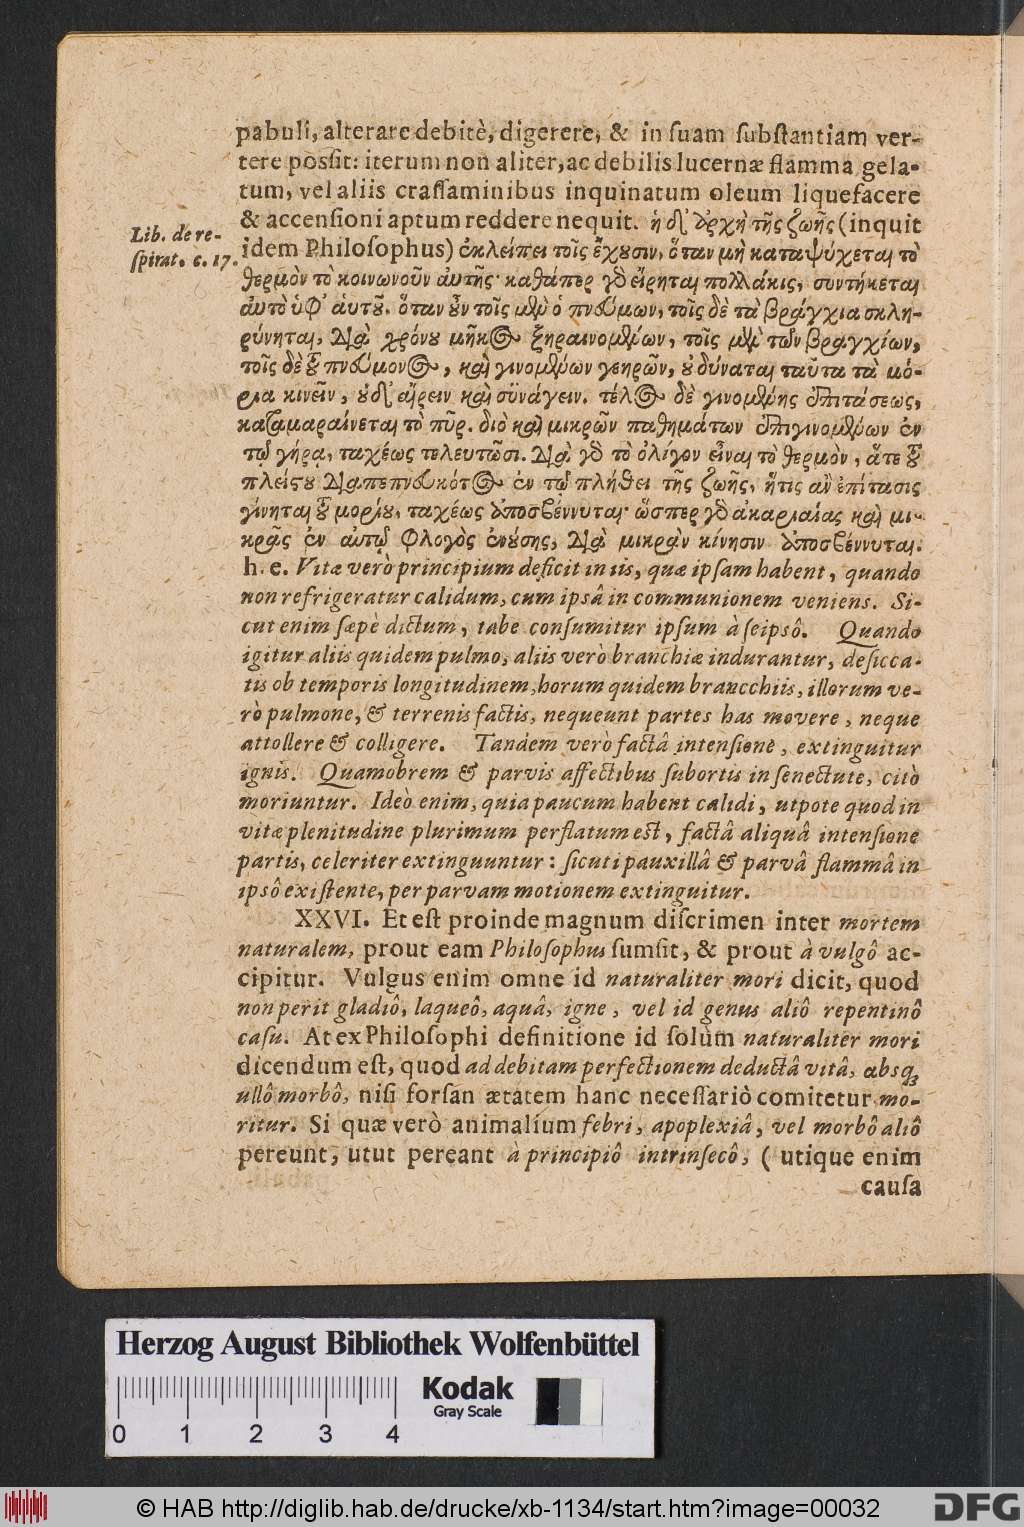 pabuli, alterare debitè, digerere, & in suam substantiam ver-
tere possit: iterum non aliter, ac debilis lucernæ flamma gela-
tum, vel aliis crassaminibus inquinatum oleum liquefacere
& accensioni aptum reddere nequit. ἡ δ' ἀρχὴ τῆς ζωῆς (inquit
Lib. de re-
spirat. c. 17.
idem Philosophus) ἐκλείπει τοῖς ἔχουσιν, ὅταν μὴ καταψύχεται τὸ
θερμὸν τὸ κοινωνοῦν αὐτῆς· καθάπερ γὸ εἴρηται πολλάκις, συντήκεται
αὐτὸ ὑφ' αὑτοῦ. ὅταν οὖν τοῖς μὲν ὁ πνεύμων, τοῖς δὲ τὰ βράγχια σκλη-
ρύνηται, διὰ χρόνου μῆκος ξηραινομένων, τοῖς μὲν τῶν βραγχίων,
τοῖς δὲ τοῦ πνεύμονος, καὶ γινομένων γεηρῶν, οὐ δύναται ταῦτα τὰ μό-
ρια κινεῖν, οὐδ' αἴρειν καὶ συνάγειν. τέλος δὲ γινομένης ἐπιτάσεως,
καταμαραίνεται τὸ πῦρ. διὸ καὶ μικρῶν παθημάτων ἐπιγινομένων ἐν
τῷ γήρᾳ, ταχέως τελευτῶσι. διὰ γὸ τὸ ὀλίγον εἶναι τὸ θερμὸν, ἅτε τοῦ
πλείστου διαπεπνευκότος ἐν τῷ πλήθει τῆς ζωῆς, ἥτις ἂν ἐπίτασις
γίνηται τοῦ μορίου, ταχέως ἀποσβέννυται· ὥσπερ γὸ ἀκαριαίας καὶ μι-
κρᾶς ἐν αὐτῷ φλογὸς ἐνούσης, διὰ μικρὰν κίνησιν ἀποσβέννυται.
h. e. Vitæ verò principium deficit in iis, quæ ipsam habent, quando
non refrigeratur calidum, cum ipsâ in communionem veniens. Si-
cut enim sæpè dictum, tabe consumitur ipsum à seipsô. Quando
igitur aliis quidem pulmo, aliis verò branchiæ indurantur, desicca-
tis ob temporis longitudinem, horum quidem brancchiis, illorum ve-
rò pulmone, & terrenis factis, nequeunt partes has movere, neque
attollere & colligere. Tandem verò factâ intensione, extinguitur
ignis. Quamobrem & parvis affectibus subortis in senectute, citò
moriuntur. Ideò enim, quia paucum habent calidi, utpote quod in
vitæ plenitudine plurimum perflatum est, factâ aliquâ intensione
partis, celeriter extinguuntur: sicuti pauxillâ & parvâ flammâ in
ipsô existente, per parvam motionem extinguitur.
XXVI. Et est proinde magnum discrimen inter mortem
naturalem, prout eam Philosophus sumsit, & prout à vulgô ac-
cipitur. Vulgus enim omne id naturaliter mori dicit, quod
non perit gladiô, laqueô, aquâ, igne, vel id genus aliô repentinô
casu. At ex Philosophi definitione id solùm naturaliter mori
dicendum est, quod ad debitam perfectionem deductâ vitâ, absq́;
ullô morbô, nisi forsan ætatem hanc necessariò comitetur mo-
ritur. Si quæ verò animalium febri, apoplexiâ, vel morbô aliô
pereunt, utut pereant à principiô intrinsecô, (utique enim
causa
Herzog August Bibliothek Wolfenbüttel
Kodak
Gray Scale
0 1 2 3 4
© HAB http://diglib.hab.de/drucke/xb-1134/start.htm?image=00032
DFG